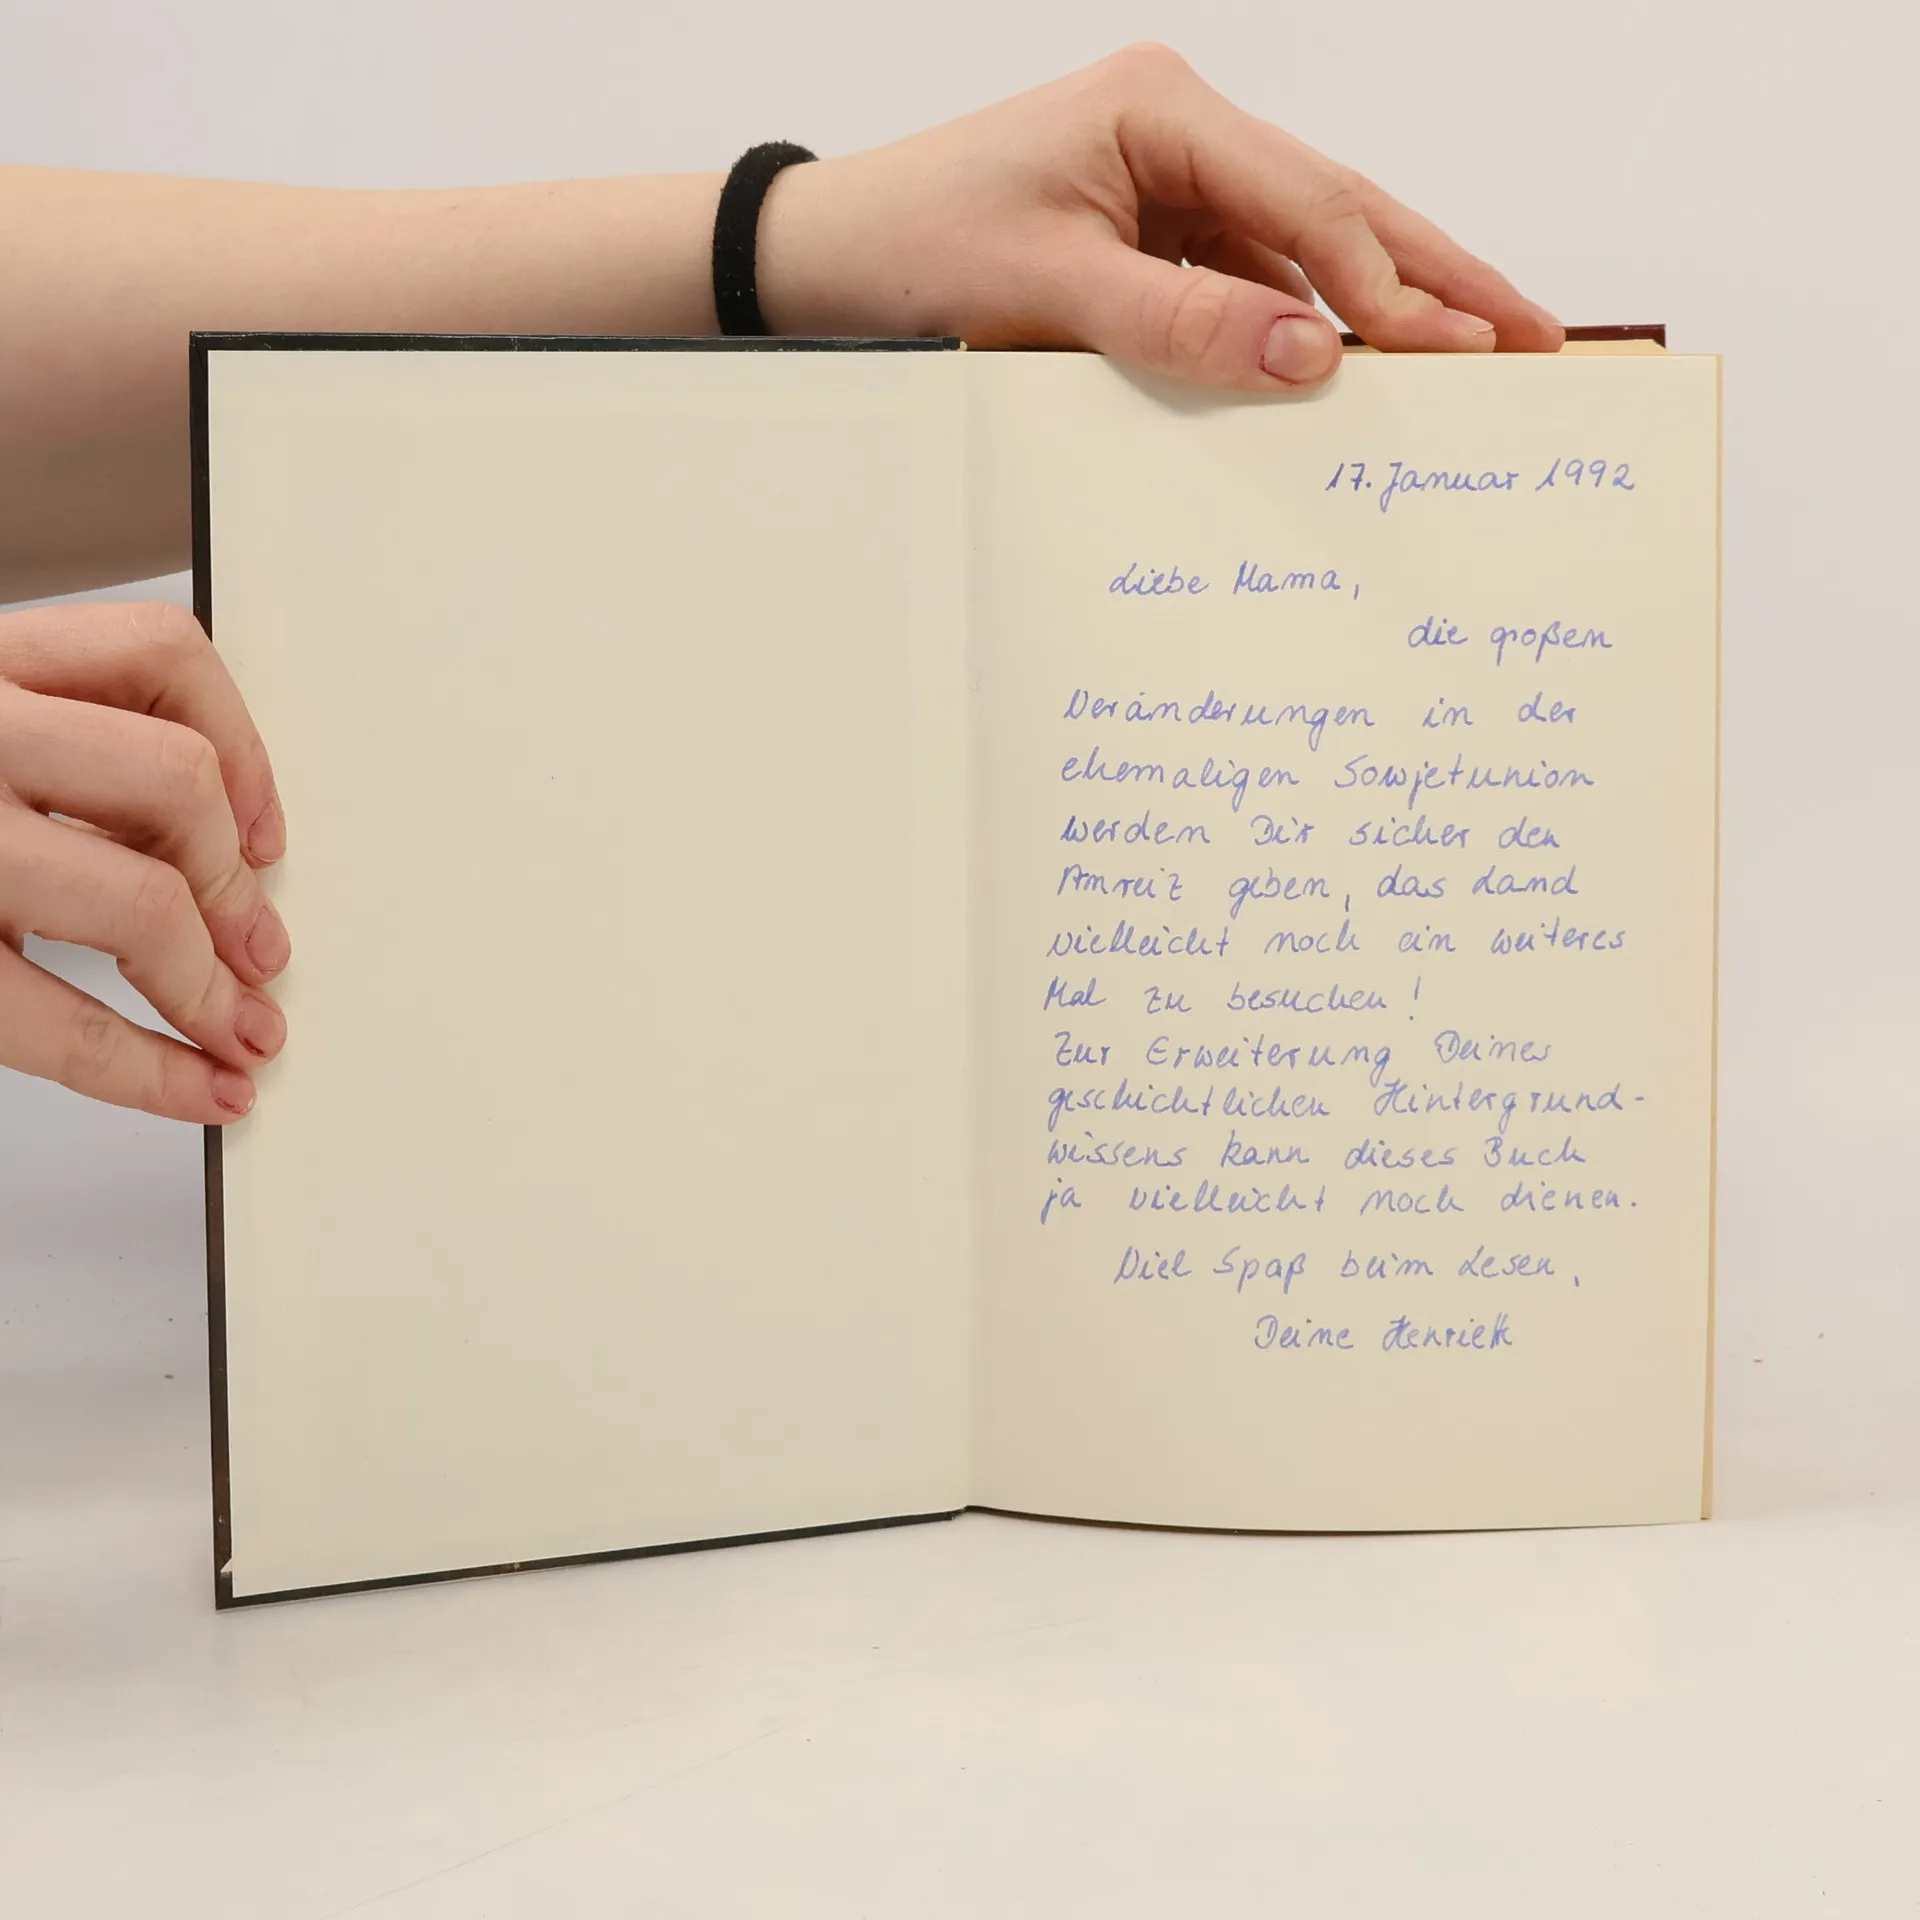 17. Januar 1992
Liebe Mama,
die großen
Veränderungen in der
ehemaligen Sowjetunion
werden Dir sicher den
Anreiz geben, das Land
vielleicht noch ein weiteres
Mal zu besuchen!
Zur Erweiterung Deines
geschichtlichen Hintergrund-
wissens kann dieses Buch
ja vielleicht noch dienen.
Viel Spaß beim Lesen,
Deine Henriette